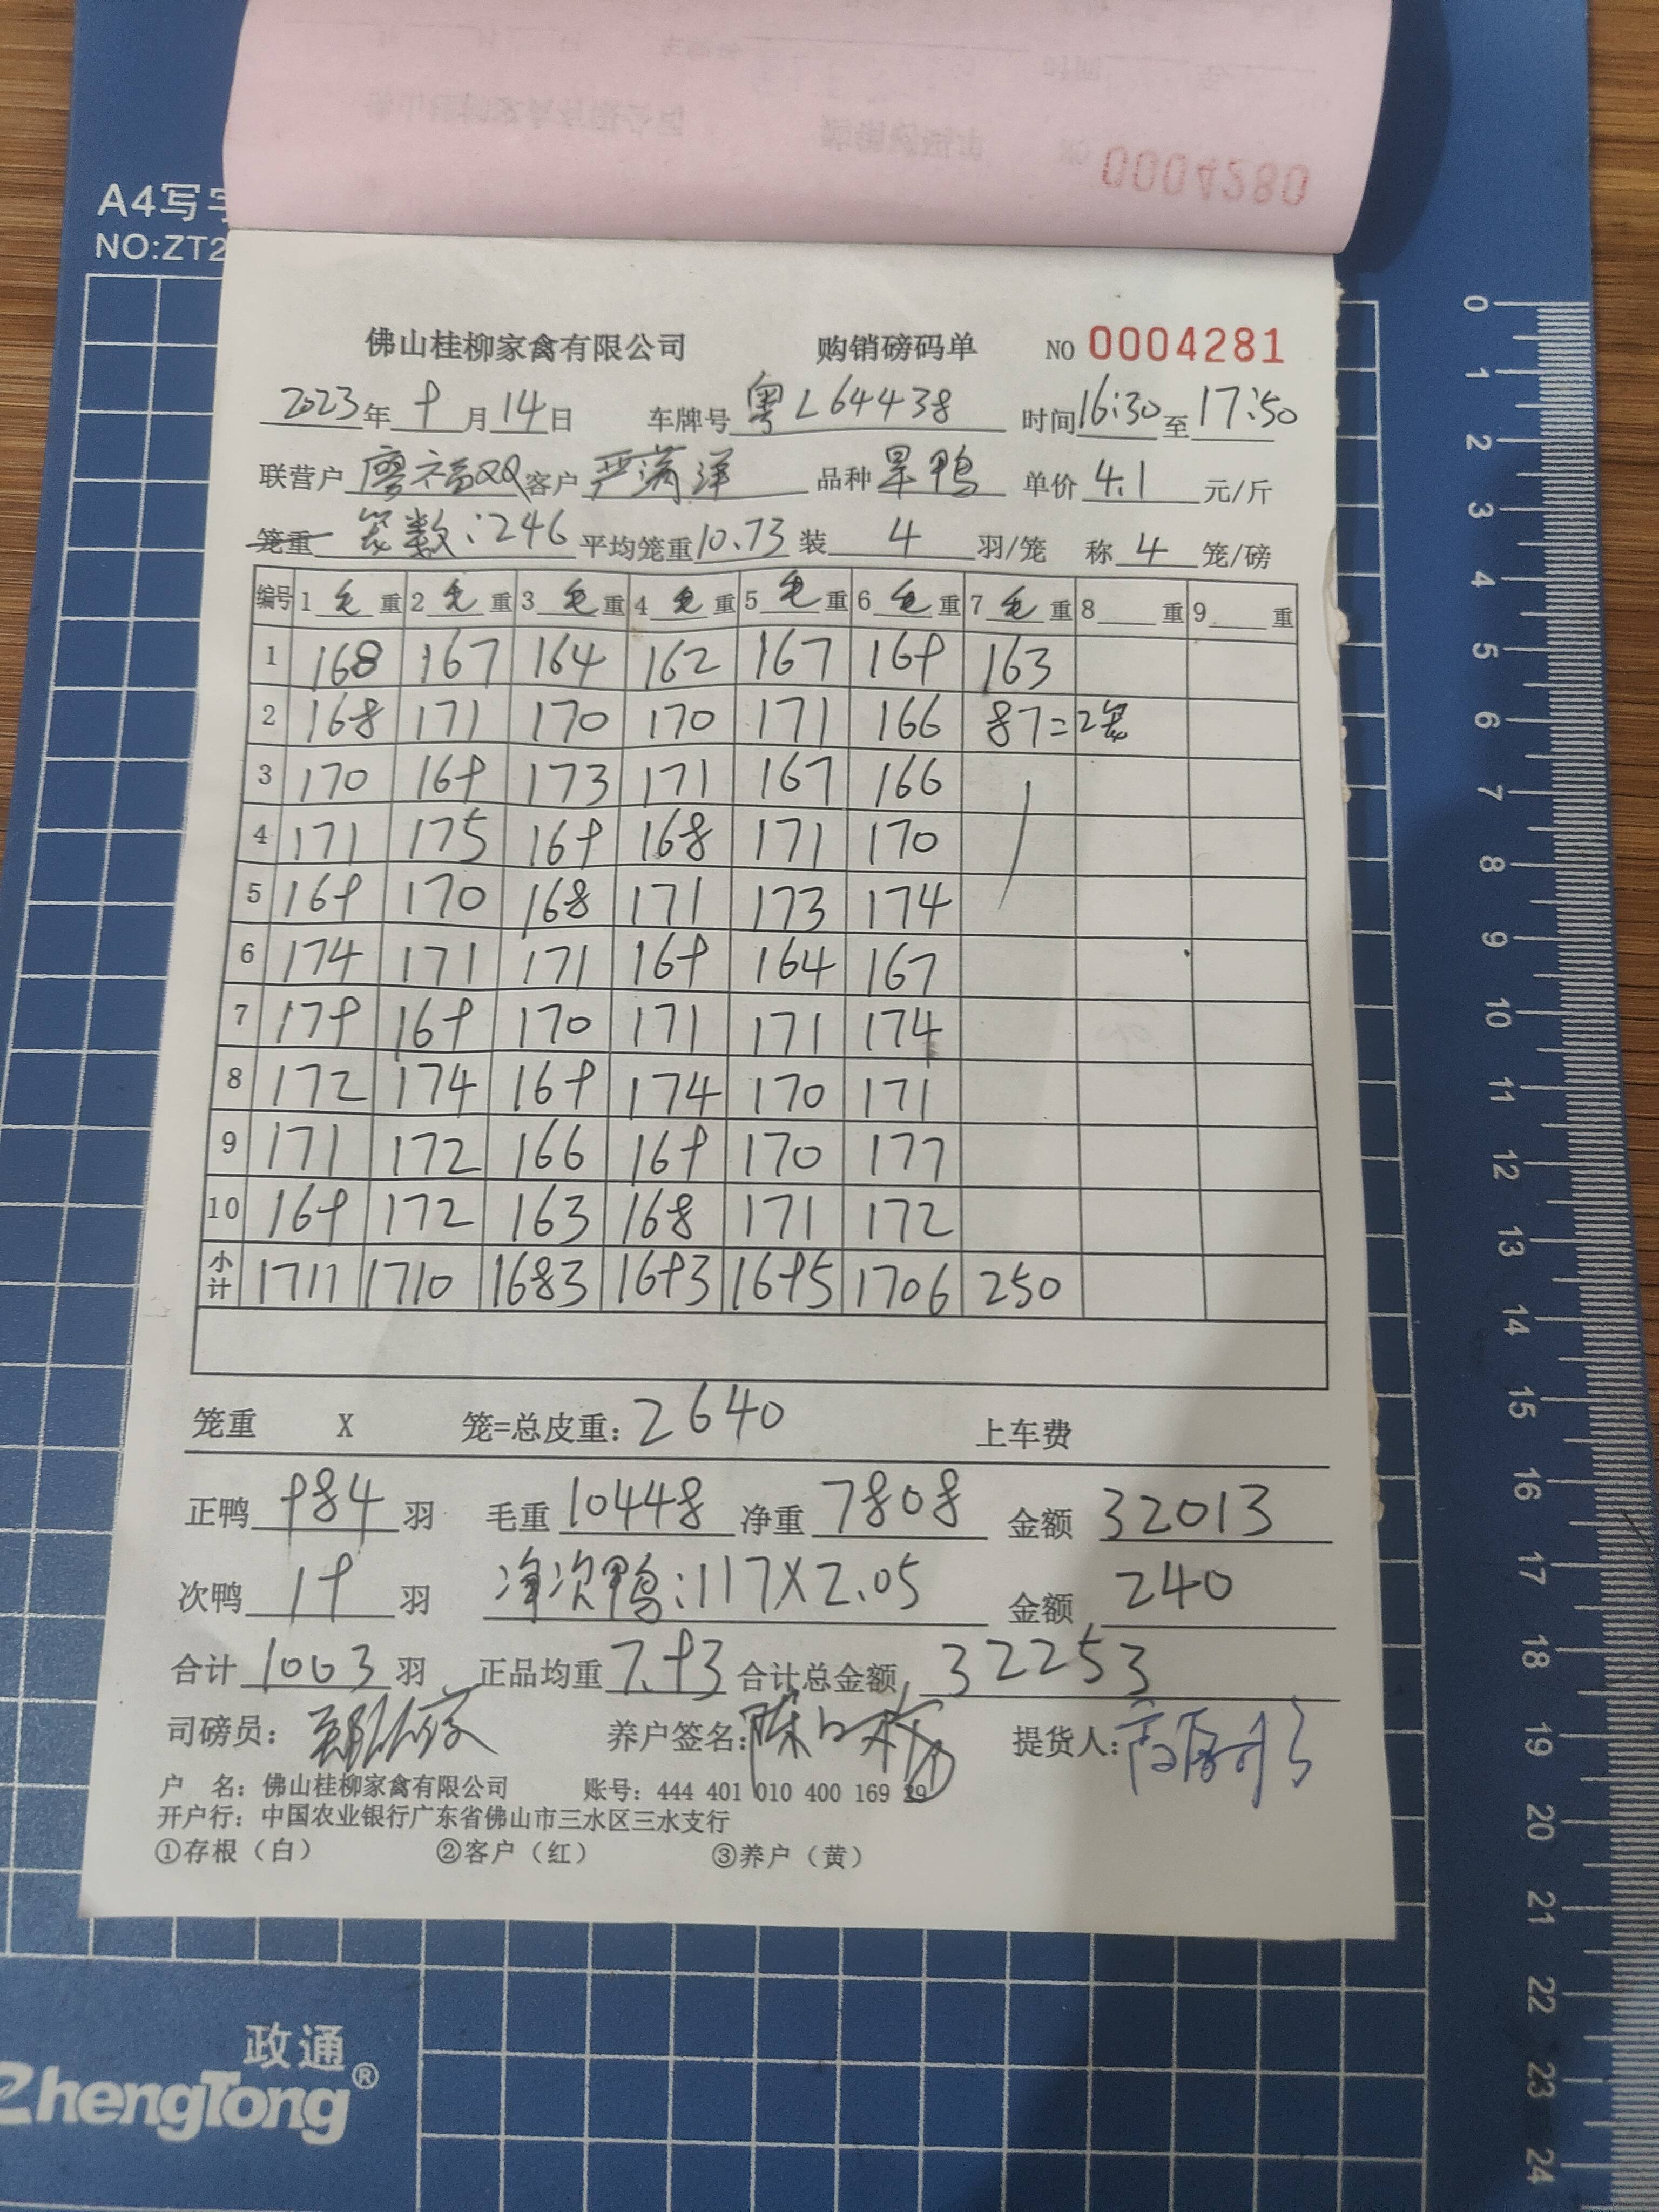 0004280
A4写字
NO:ZT2
佛山桂柳家禽有限公司 购销磅码单 NO 0004281
2023年 9月 14日 车牌号 粤L64438 时间16:30至17:50
联营户 廖福双 客户 严满洋 品种 旱鸭 单价 4.1 元/斤
笼重 笼数:246 平均笼重10.73 装 4 羽/笼 称 4 笼/磅
编号 1毛重 2毛重 3毛重 4毛重 5毛重 6毛重 7毛重 8 重 9 重
1 168 167 164 162 167 169 163
2 168 171 170 170 171 166 87=2笼
3 170 169 173 171 167 166
4 171 175 169 168 171 170
5 169 170 168 171 173 174
6 174 171 171 169 164 167
7 179 169 170 171 171 174
8 172 174 169 174 170 171
9 171 172 166 169 170 177
10 169 172 163 168 171 172
小计 1711 1710 1683 1693 1695 1706 250
笼重 X 笼=总皮重:2640 上车费
正鸭 984 羽 毛重 10448 净重 7808 金额 32013
次鸭 19 羽 净次鸭:117X2.05 金额 240
合计 1003 羽 正品均重 7.93 合计总金额 32253
司磅员: 养户签名: 提货人:
户 名: 佛山桂柳家禽有限公司 账号: 444 401 010 400 169 29
开户行: 中国农业银行广东省佛山市三水区三水支行
①存根（白） ②客户（红） ③养户（黄）
政通
ZhengTong®
0
1
2
3
4
5
6
7
8
9
10
11
12
13
14
15
16
17
18
19
20
21
22
23
24